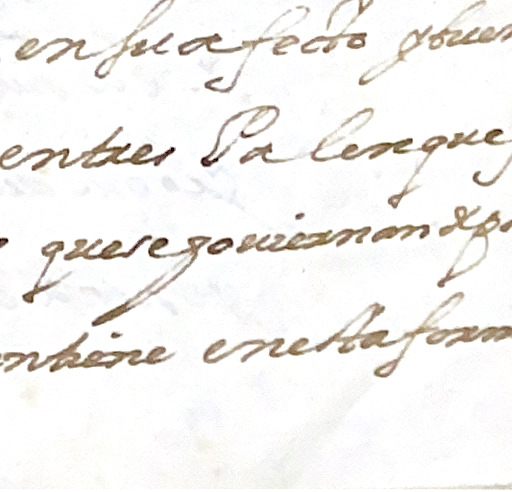 en su afecto y buen
entres Palenques
que se goviernan
ntiene en esta form